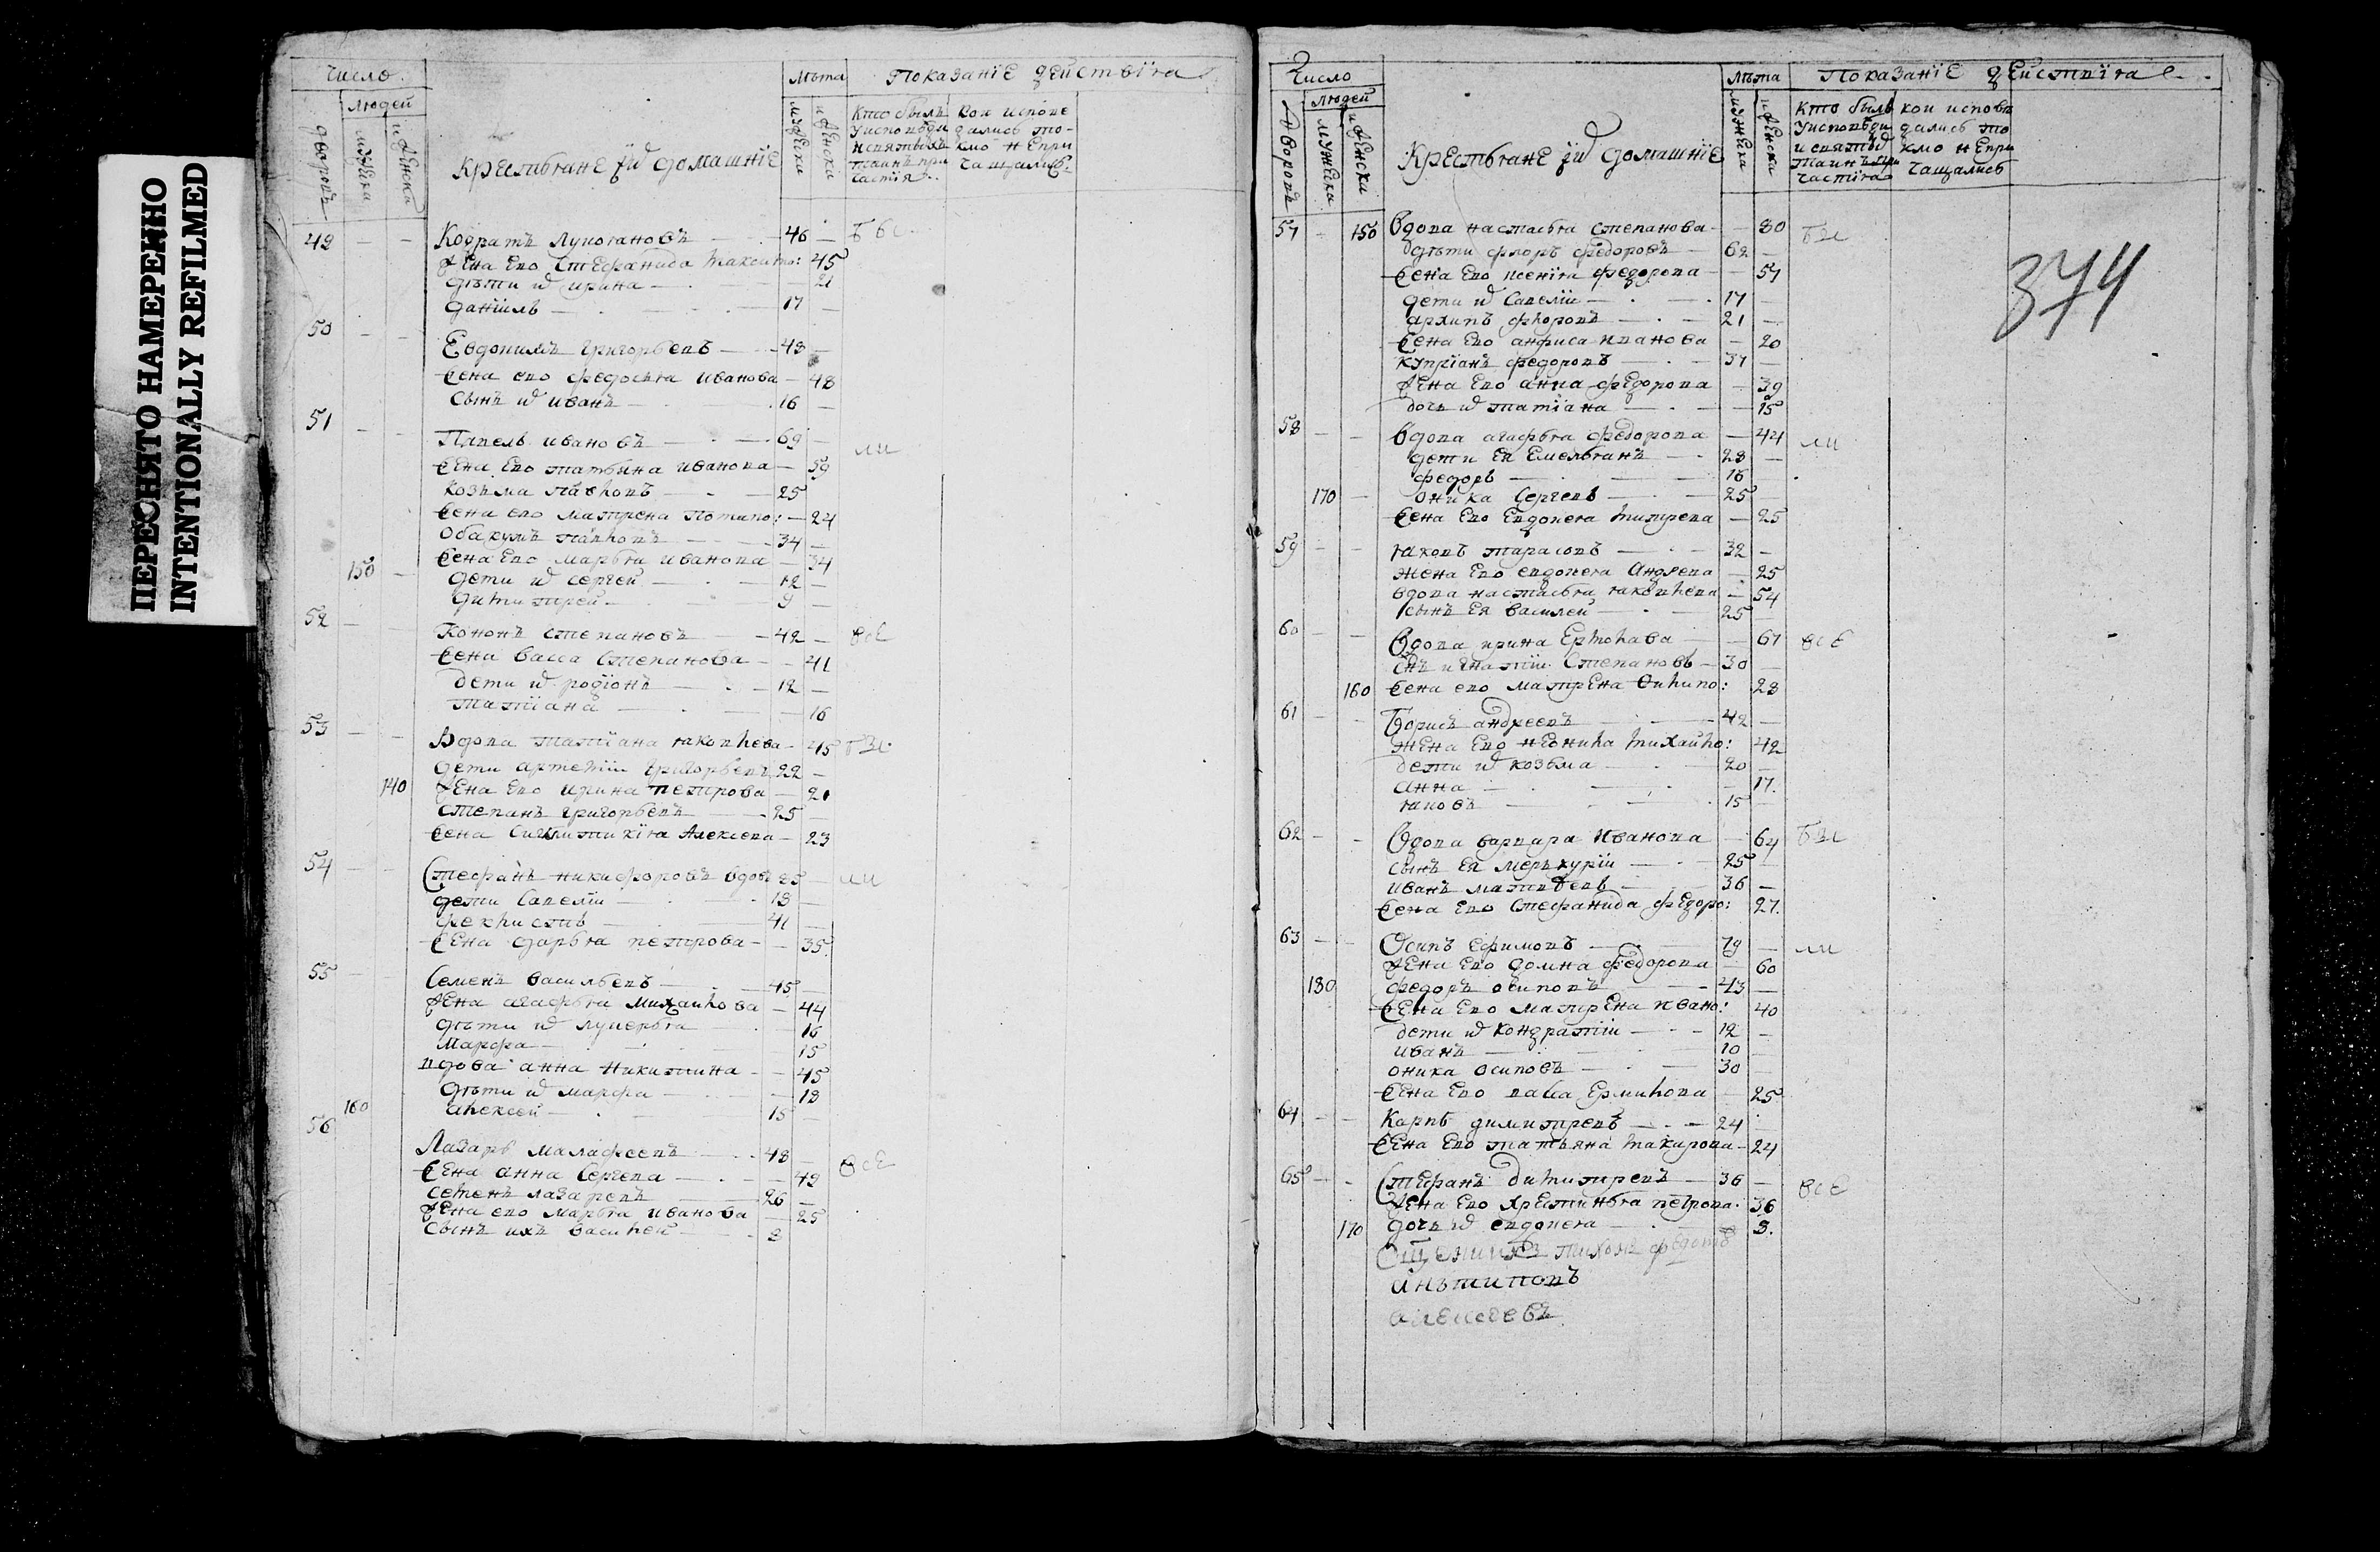 ПЕРЕСНЯТО НАМЕРЕННО
INTENTIONALLY REFILMED
Число
Людей
дворовъ
мужеска
женска
Крестьяне и домашніе
Лѣта
мужеска
женска
Показаніе действія
Кто былъ
у исповѣди
и святыхъ
таинъ при
частія
кои испове
дались то-
кмо непри
чащались
49 46
Жена ево Стефанида 45
дѣти ирина 21
даніилъ 17
50 Евдокимъ Григорьевъ 48
жена ево федосья Иванова 48
сынъ иванъ 16
51 Павелъ ивановъ 69
жена ево татьяна иванова 59
козьма павловъ 25
жена ево матрена 24
Обакумъ павловъ 34
150 жена ево марья иванова 34
дети сергей 12
димитрей 9
52 Кононъ степановъ 42 все
жена васса степанова 41
дети родіонъ 12
татіана 16
53 Вдова татіана яковлева 45
дети артемій григорьевъ 22
140 жена ево ирина петрова 20
степанъ григорьевъ 25
жена Алексева 23
54 Стефанъ никифоровъ вдовъ
дети савелій 18
феклистъ 41
жена дарья петрова 35
55 Семенъ васильевъ 45
жена агафья михайлова 44
дѣти лукерья 16
Марфа 15
вдова анна никитина 45
дѣти марфа 18
160 алексей 15
56 Лазарь малафеевъ 48 все
жена анна сергева 49
семенъ лазаревъ 26
жена ево марья иванова 25
сынъ ихъ василей 8
Число
Людей
дворовъ
мужеска
женска
Крестьяне и домашніе
Лѣта
мужеска
женска
Показаніе действія
Кто былъ
у исповѣди
и святы
таинъ при
частія
кои исповѣ
дались то
кмо непри
чащались
374
57 150 Вдова настасья степанова 80
дѣти флоръ федоровъ 62
жена ево ксенія федорова 57
дети савелій 17
архипъ флоровъ 21
жена ево анфиса иванова 20
купріанъ федоровъ 37
жена ево анна федорова 39
дочь татіана 15
58 Вдова агафья федорова 44
дети ея емельянъ 28
федоръ 16
170 оника сергевъ 25
жена ево евдокея 25
59 яковъ тарасовъ 32
жена ево евдокея андрева 25
вдова настасья яковлева 54
сынъ ея василей 25
60 Вдова ирина ермолаева 67 все
снъ игнатій степановъ 30
160 жена ево матрена филипо: 28
61 Борисъ андреевъ 42
жена ево неонила михайло: 42
дети козьма 20
анна 17
яковъ 15
62 Вдова варвара иванова 64
сынъ ея меркурій 25
иванъ матвѣевъ 36
жена ево стефанида федоро: 27
63 Осипъ ефимовъ 79
жена ево домна федорова 60
180 федоръ осиповъ 43
жена ево матрена ивано: 40
дети кондратій 12
иванъ 10
оника осиповъ 30
жена ево васса ермилова 25
64 Карпъ димитревъ 24
жена ево татьяна макарова 24
65 Стефанъ димитревъ 36 все
жена ево христинья петрова 36
170 дочь евдокея 8
Сщенникъ тихонъ федотовъ
антиповъ
алексеевъ